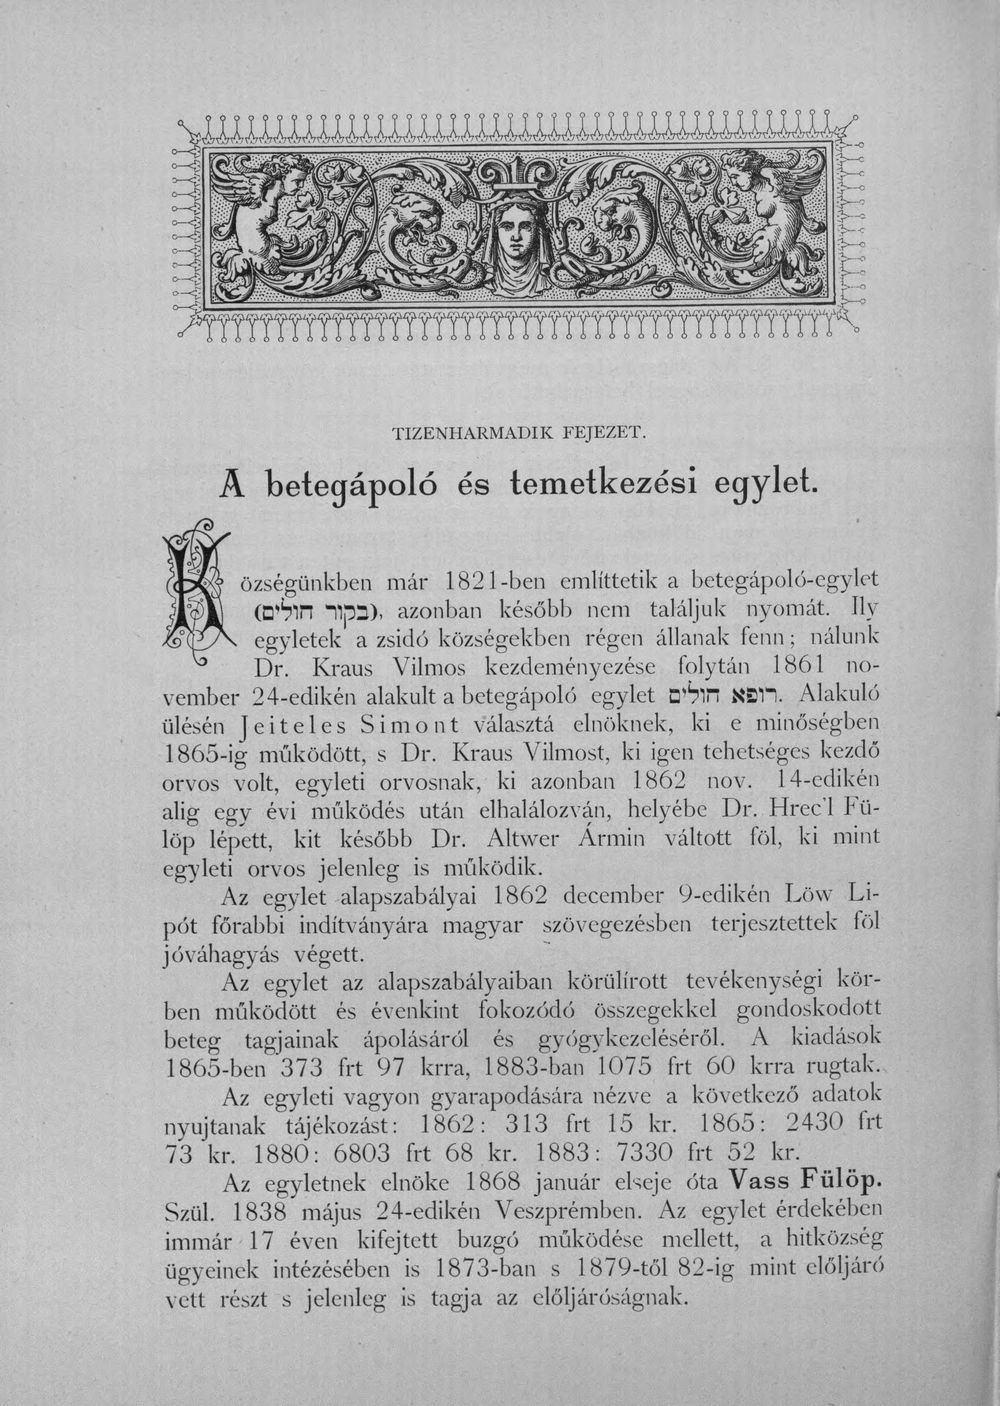 TIZENHARMADIK FEJEZET.
A betegápoló és temetkezési egylet.
Községünkben már 1821-ben említtetik a betegápoló-egylet
(בקור חולים), azonban később nem találjuk nyomát. Ily
egyletek a zsidó községekben régen állanak fenn; nálunk
Dr. Kraus Vilmos kezdeményezése folytán 1861 no-
vember 24-edikén alakult a betegápoló egylet רופא חולים. Alakuló
ülésén Jeiteles Simont választá elnöknek, ki e minőségben
1865-ig működött, s Dr. Kraus Vilmost, ki igen tehetséges kezdő
orvos volt, egyleti orvosnak, ki azonban 1862 nov. 14-edikén
alig egy évi működés után elhalálozván, helyébe Dr. Fü-
löp lépett, kit később Dr. Altwer Ármin váltott föl, ki mint
egyleti orvos jelenleg is működik.
Az egylet alapszabályai 1862 december 9-edikén Löw Li-
pót főrabbi indítványára magyar szövegezésben terjesztettek föl
jóváhagyás végett.
Az egylet az alapszabályaiban körülírott tevékenységi kör-
ben működött és évenkint fokozódó összegekkel gondoskodott
beteg tagjainak ápolásáról és gyógykezeléséről. A kiadások
1865-ben 373 frt 97 krra, 1883-ban 1075 frt 60 krra rugtak.
Az egyleti vagyon gyarapodására nézve a következő adatok
nyujtanak tájékozást: 1862: 313 frt 15 kr. 1865: 2430 frt
73 kr. 1880: 6803 frt 68 kr. 1883: 7330 frt 52 kr.
Az egyletnek elnöke 1868 január elseje óta Vass Fülöp.
Szül. 1838 május 24-edikén Veszprémben. Az egylet érdekében
immár 17 éven kifejtett buzgó működése mellett, a hitközség
ügyeinek intézésében is 1873-ban s 1879-től 82-ig mint előljáró
vett részt s jelenleg is tagja az előljáróságnak.